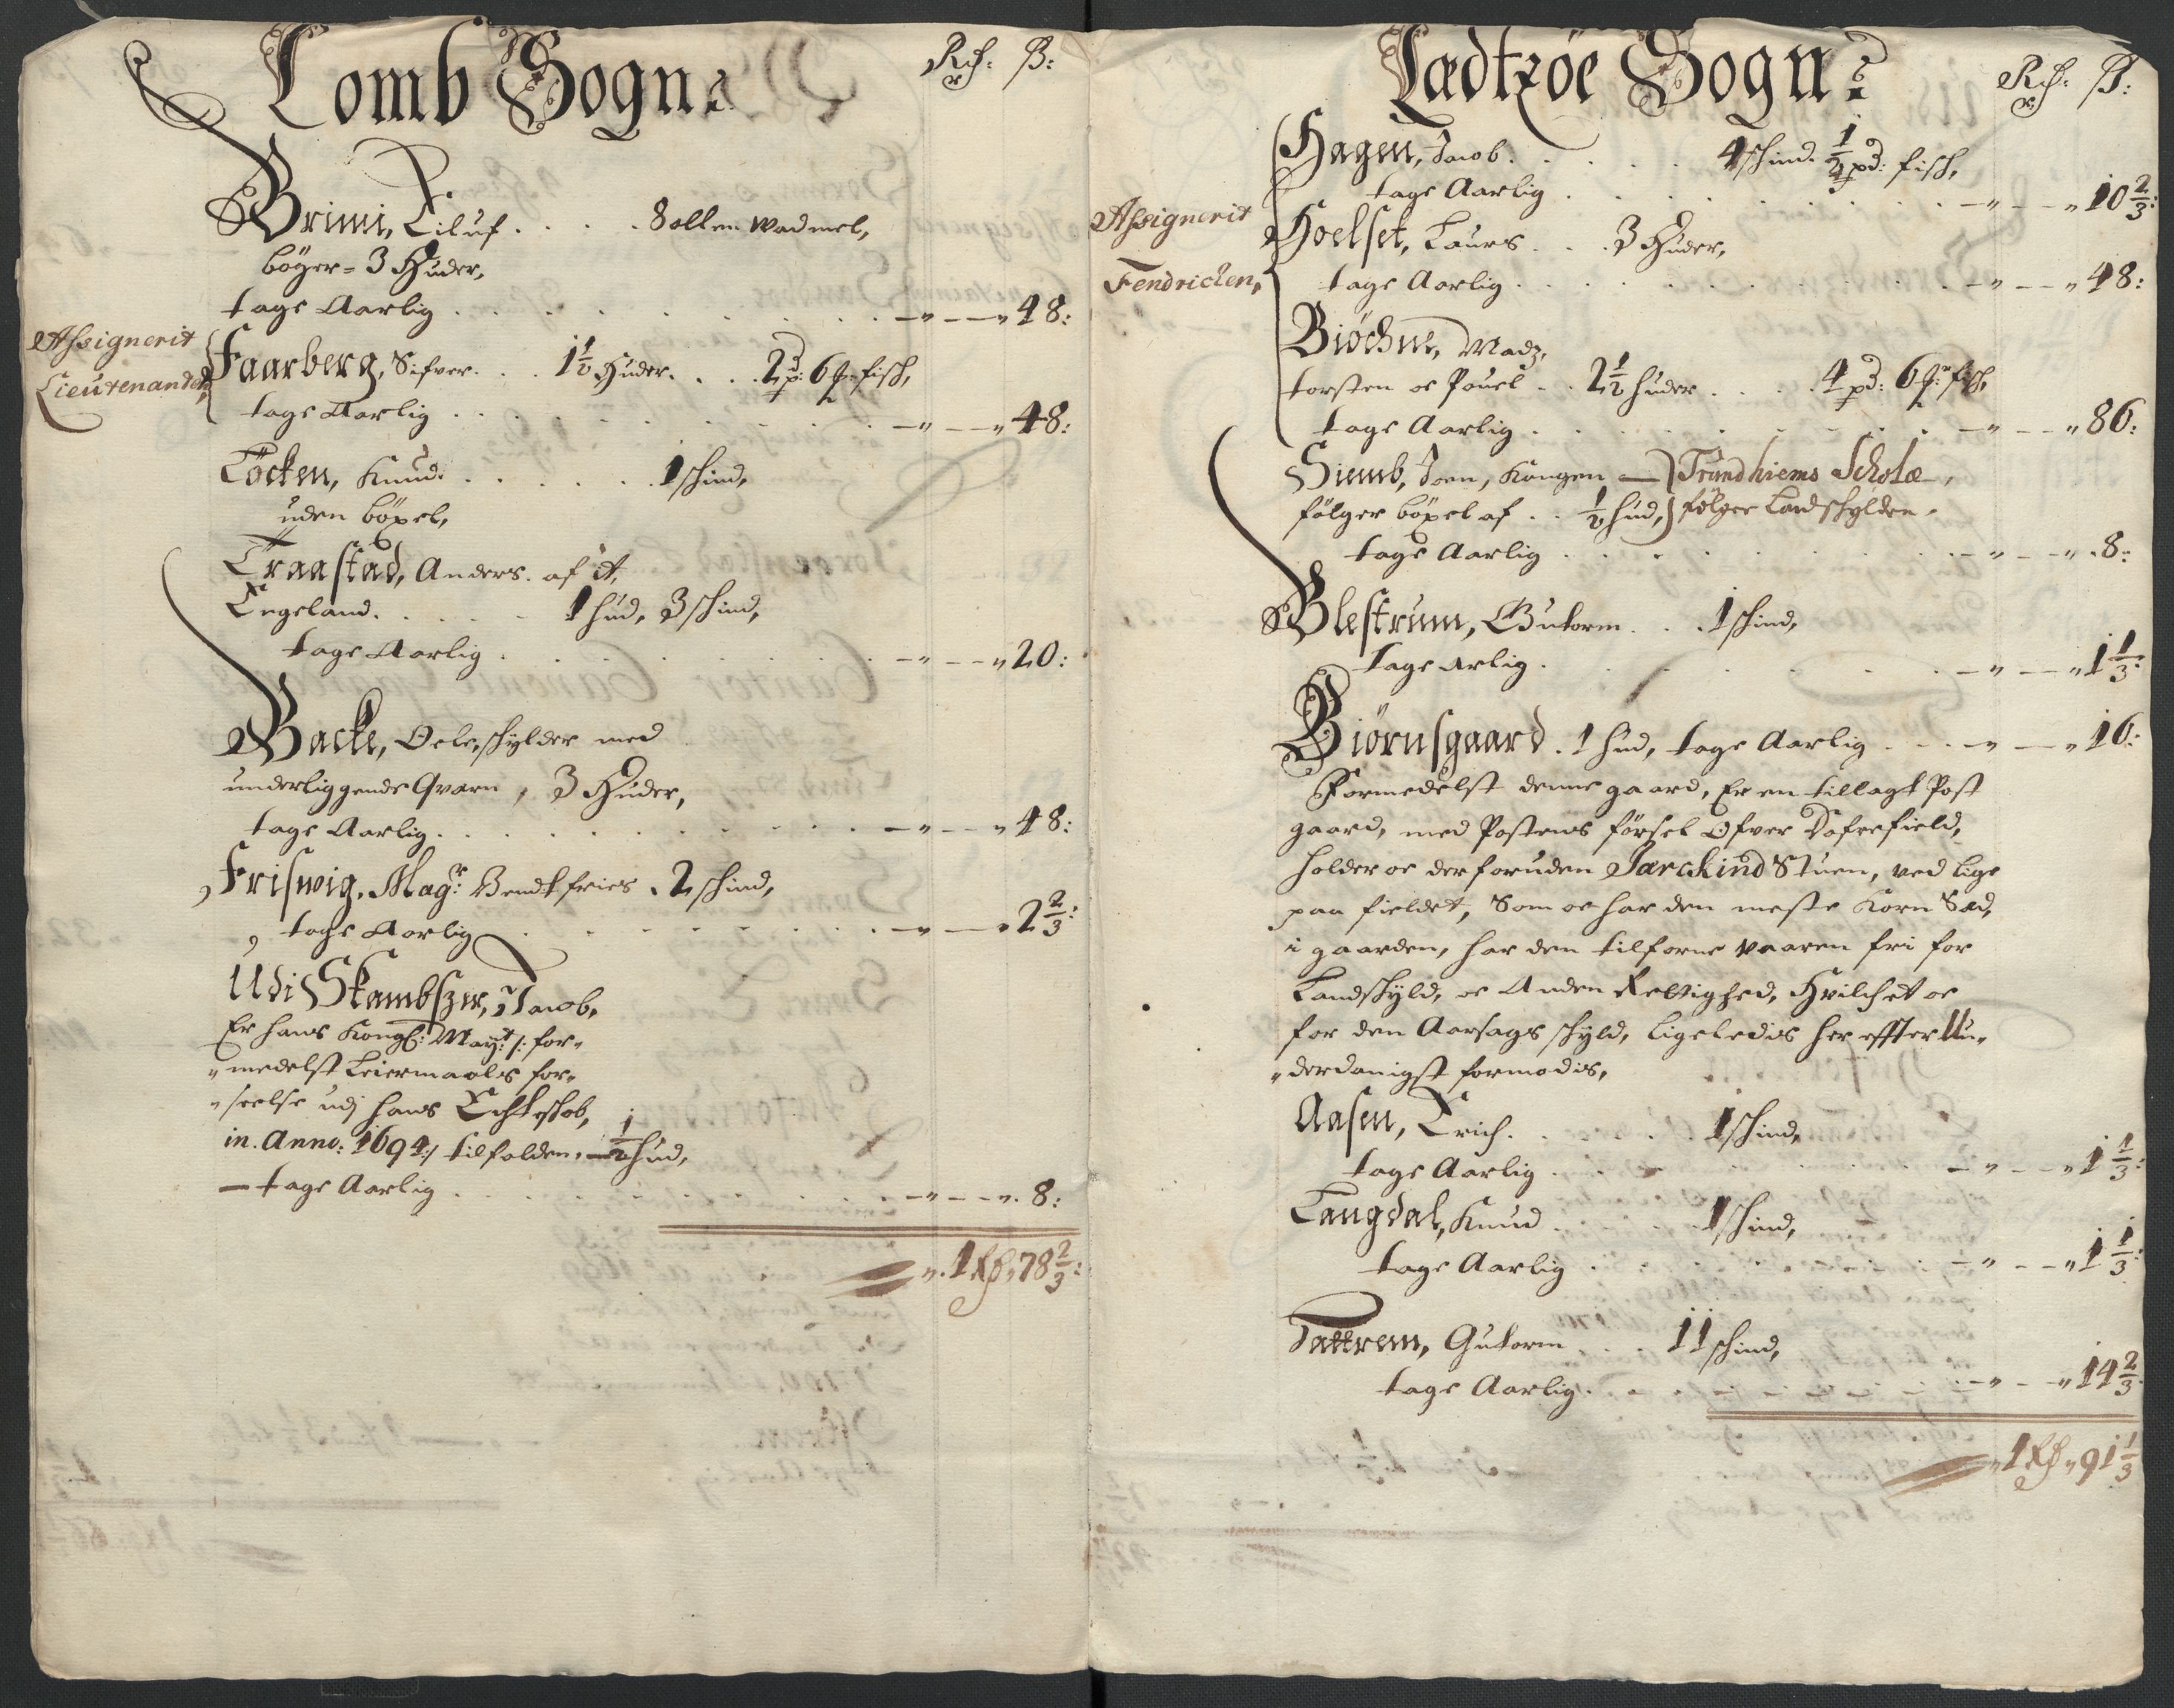 Lomb Sogn:
Rdr: ß:
Brimi, Eiluf . . . . 8 allen wadmel,
böxer = 3 Huder,
tage Aarlig . . . . — " — " 48:
Assignerit
Lieutenanden,
Faarberg, Sifver . . . 1½ Huder . . . 2 pd: 6 fisch,
tage Aarlig . . . . — " — " 48:
Löcken, Knud . . . . 1 schind,
uden böxel,
Traastad, Anders. af it,
Engeland . . . . 1 hud, 3 schind,
tage Aarlig . . . . — " — " 20:
Backe, Oele, schylder med
underliggende Qvarn, 3 Huder,
tage Aarlig . . . . — " — " 48:
Friswig, Magr: Bendt fries . 2 schind,
tage Aarlig . . . . — " — " 2⅔:
Udi Skambszer, Jacob,
Er hans Kongl: Mayt: /: for=
=medelst Leiermaals for=
=seelse udj hans Echteskab,
in. Anno: 1694 :/ tilfalden, — ½ hud,
— tage Aarlig . . . . — " — " 8:
" 1 Rdr " 78⅔:
Lædtzöe Sogn:
Rdr: ß:
Assignerit
Fendricken,
Hagen, Jacob . . . . 4 schind. ½ pd: fisch,
tage Aarlig . . . . — " — " 10⅔:
Hoelset, Laurs . . . 3 Huder,
tage Aarlig . . . . — " — " 48:
Biöchne, Madz,
torsten oc Pouel . . 2½ huder . . . . 4 pd: 6 fisch,
tage Aarlig . . . . — " — " 86:
Siemb, Joen, Kongen — } Trundhiems Scholæ,
følger böxel af . . ½ hud, } følger Landschylden.
tage Aarlig . . . . — " — " 8:
Blestrum, Guttorm . . . 1 schind,
Tage arlig . . . . — " — " 1⅓:
Biörnsgaard . 1 hud, tage Aarlig . . . — " — " 16:
Formedelst denne gaard, Er en tillagt Post
gaard, med Postensførsel Ofver Dofrefield,
holder oc der foruden Jærckind Stuen, ved lige
paa fieldet, Som oc har den meste Korn Sæd,
i gaarden, har den tilforne vaaren fri for
Landschyld, oc Anden Rettighed, Hvilchet oc
for den Aarsags schyld, ligeledis her effter Un=
=derdanigst formodis,
Aasen, Erich . . . . 1 schind,
tage Aarlig . . . . — " — " 1⅓:
Langdal, Knud . . . . 1 schind,
tage Aarlig . . . . — " — " 1⅓:
Tattrem, Gutorm . . . 11 schind,
tage Aarlig . . . . — " — " 14⅔
" 1 Rdr " 91⅓